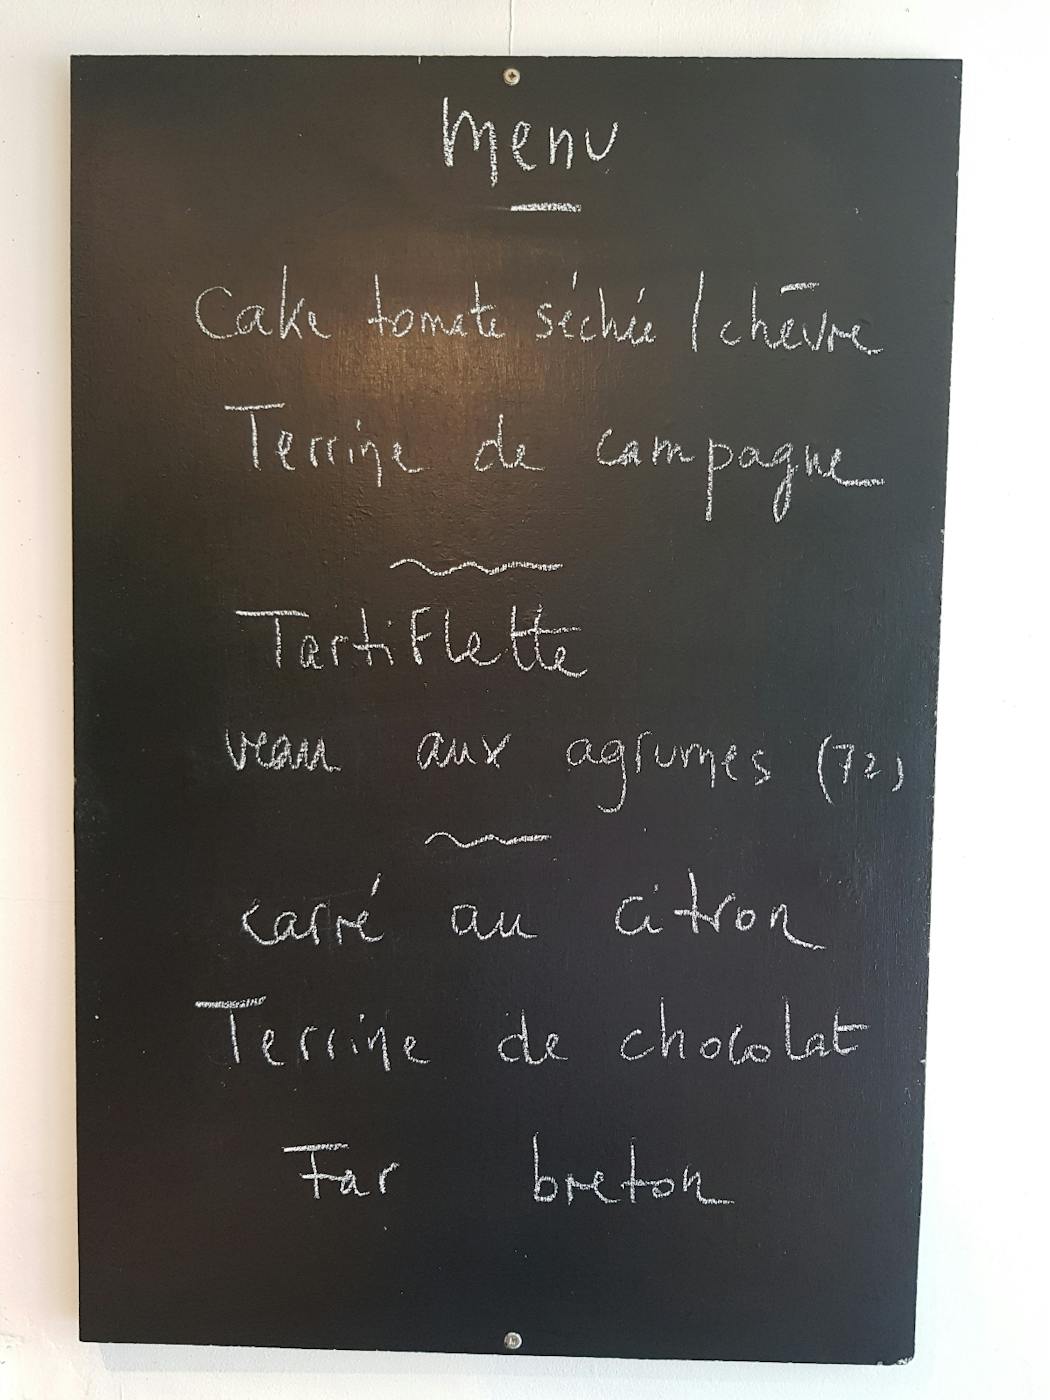 Menu
Cake tomate séchée / chèvre
Terrine de campagne
Tartiflette
veau aux agrumes (72)
carré au citron
Terrine de chocolat
Far breton